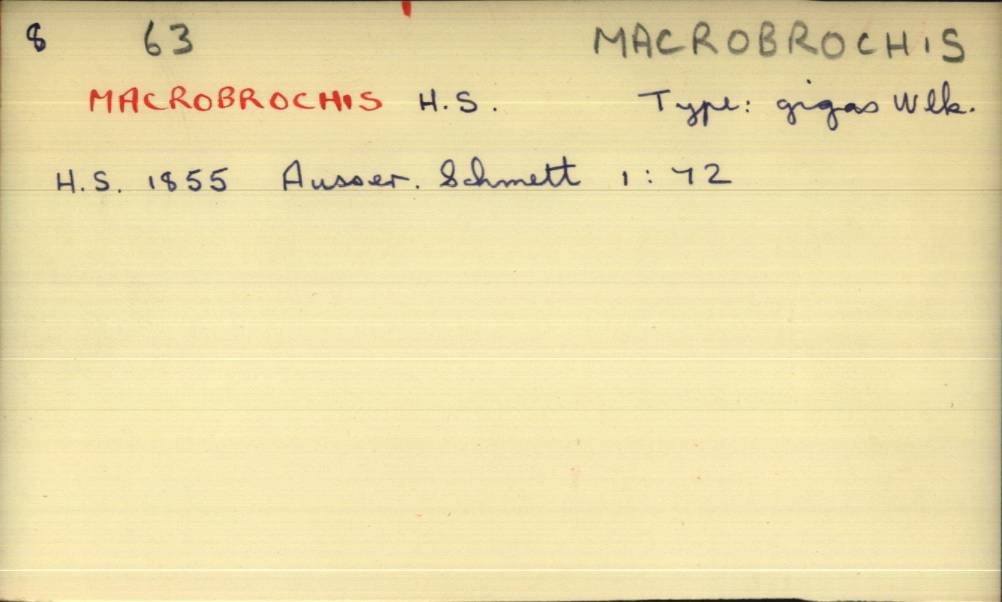 8 63 MACROBROCHIS
MACROBROCHIS H.S. Type: gigas Wlk.
H.S. 1855 Ausser. Schmett 1: 72